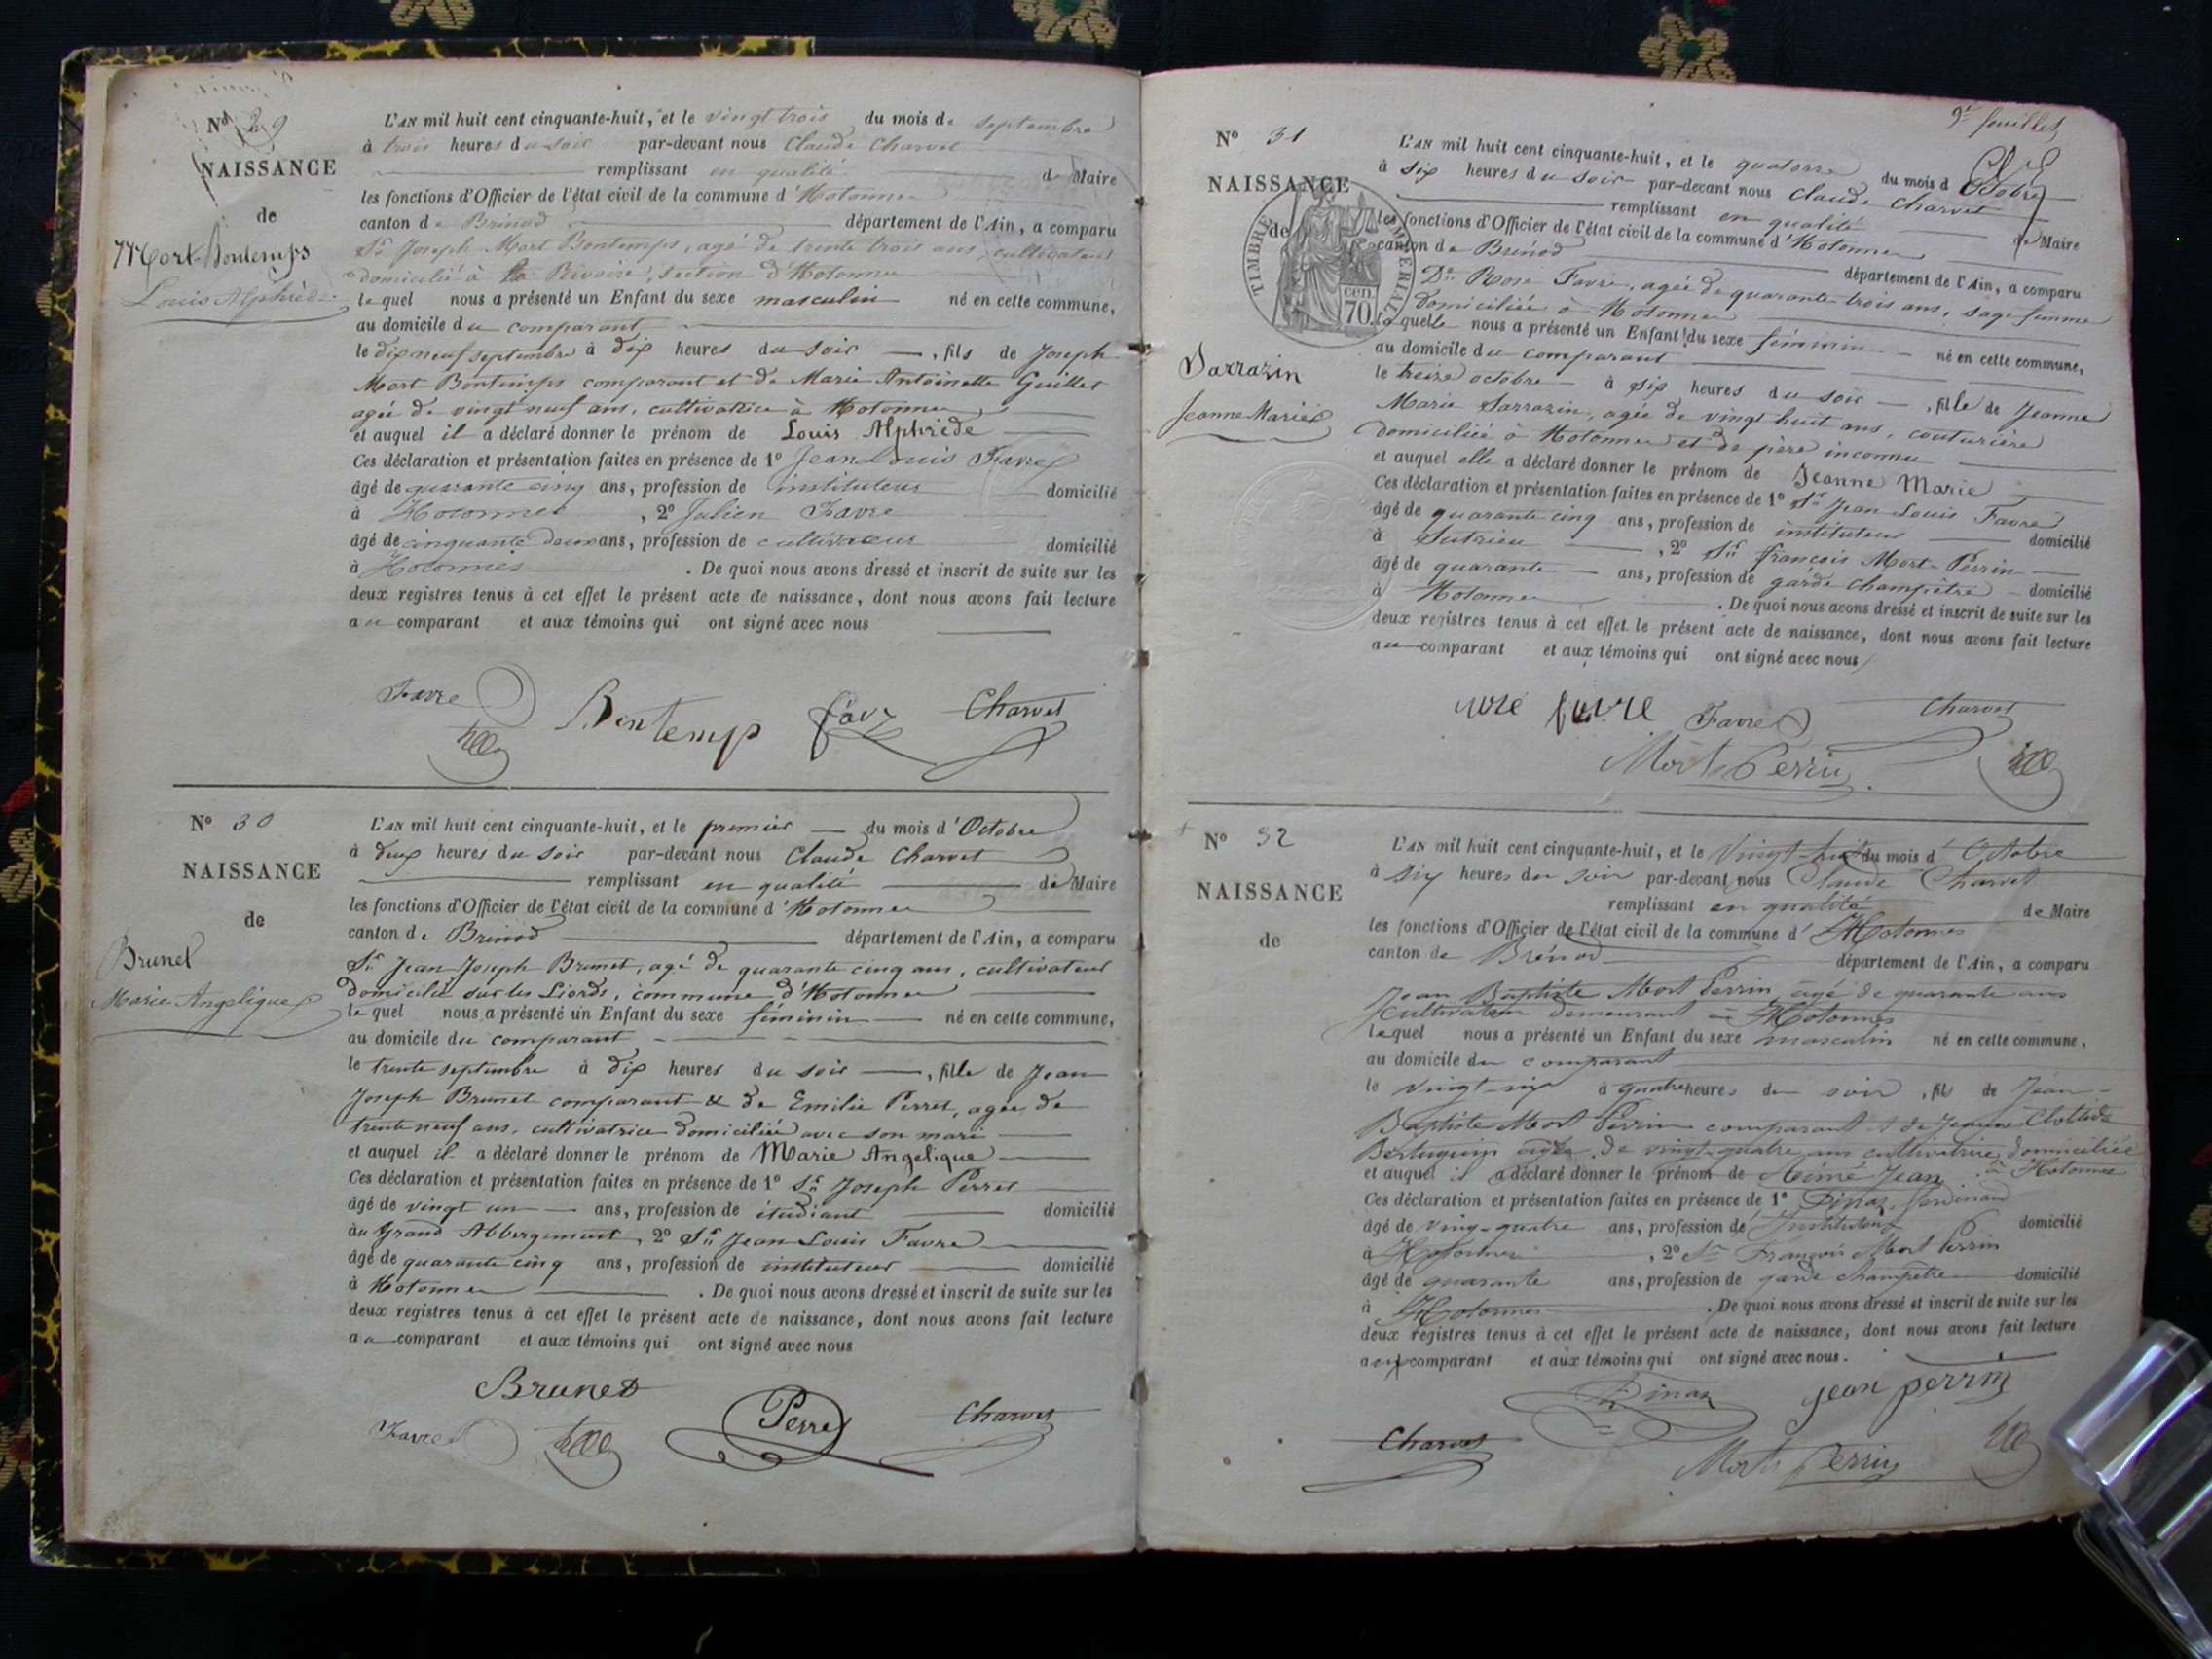 N° 29
NAISSANCE
de
Mort-Bontemps
Louis Alphrède
L'AN mil huit cent cinquante-huit, et le vingt trois du mois de septembre
à trois heures du soir par-devant nous Claude Charvet
remplissant en qualité de Maire
les fonctions d'Officier de l'état civil de la commune d'Hotonnes
canton de Brénod département de l'Ain, a comparu
Sr Joseph Mort Bontemps, agé de trente trois ans, cultivateur
domicilié à la Rivoire, section d'Hotonnes
lequel nous a présenté un Enfant du sexe masculin né en cette commune,
au domicile du comparant
le dix neuf septembre à dix heures du soir, fils de Joseph
Mort Bontemps comparant et de Marie Antoinette Guillet
agée de vingt neuf ans, cultivatrice à Hotonnes
et auquel il a déclaré donner le prénom de Louis Alphrède
Ces déclaration et présentation faites en présence de 1° Jean Louis Favre
âgé de quarante cinq ans, profession de instituteur domicilié
à Hotonnes, 2° Julien Favre
âgé de cinquante deux ans, profession de cultivateur domicilié
à Hotonnes. De quoi nous avons dressé et inscrit de suite sur les
deux registres tenus à cet effet le présent acte de naissance, dont nous avons fait lecture
au comparant et aux témoins qui ont signé avec nous
Favre Bontemp Favr Charvet
N° 30
NAISSANCE
de
Brunet
Marie Angelique
L'AN mil huit cent cinquante-huit, et le premier du mois d'Octobre
à deux heures du soir par-devant nous Claude Charvet
remplissant en qualité de Maire
les fonctions d'Officier de l'état civil de la commune d'Hotonnes
canton de Brénod département de l'Ain, a comparu
Sr Jean Joseph Brunet, agé de quarante cinq ans, cultivateur
domicilié sur les Liords, commune d'Hotonnes
lequel nous a présenté un Enfant du sexe féminin né en cette commune,
au domicile du comparant
le trente septembre à dix heures du soir, fille de Jean
Joseph Brunet comparant & de Emilie Perret, agée de
trente neuf ans, cultivatrice domiciliée avec son mari
et auquel il a déclaré donner le prénom de Marie Angelique
Ces déclaration et présentation faites en présence de 1° Sr Joseph Perret
âgé de vingt un ans, profession de étudiant domicilié
au Grand Abbergement, 2° Sr Jean Louis Favre
âgé de quarante cinq ans, profession de instituteur domicilié
à Hotonnes. De quoi nous avons dressé et inscrit de suite sur les
deux registres tenus à cet effet le présent acte de naissance, dont nous avons fait lecture
au comparant et aux témoins qui ont signé avec nous
Brunet
Favre Perret Charvet
9e feuillet
N° 31
NAISSANCE
de
TIMBRE IMPERIAL
70 cen
Sarrazin
Jeanne Marie
L'AN mil huit cent cinquante-huit, et le quatorze du mois d'Octobre
à six heures du soir par-devant nous Claude Charvet
remplissant en qualité de Maire
les fonctions d'Officier de l'état civil de la commune d'Hotonnes
canton de Brénod département de l'Ain, a comparu
De Rose Favre, agée de quarante trois ans, sage femme
domiciliée à Hotonnes
laquelle nous a présenté un Enfant du sexe féminin né en cette commune,
au domicile du comparant
le treize octobre à six heures du soir, fille de Jeanne
Marie Sarrazin, agée de vingt huit ans, couturière
domiciliée à Hotonnes et de père inconnu
et auquel elle a déclaré donner le prénom de Jeanne Marie
Ces déclaration et présentation faites en présence de 1° Sr Jean Louis Favre
âgé de quarante cinq ans, profession de instituteur domicilié
à Sutrieu, 2° Sr François Mort-Perrin
âgé de quarante ans, profession de garde champêtre domicilié
à Hotonnes. De quoi nous avons dressé et inscrit de suite sur les
deux registres tenus à cet effet le présent acte de naissance, dont nous avons fait lecture
au comparant et aux témoins qui ont signé avec nous
favre Favre Charvet
Mort Perrin
N° 32
NAISSANCE
de
L'AN mil huit cent cinquante-huit, et le Vingt-huit du mois d'Octobre
à six heures du soir par-devant nous Claude Charvet
remplissant en qualité de Maire
les fonctions d'Officier de l'état civil de la commune d'Hotonnes
canton de Brénod département de l'Ain, a comparu
Jean Baptiste Mort Perrin, agé de quarante ans
cultivateur demeurant à Hotonnes
lequel nous a présenté un Enfant du sexe masculin né en cette commune,
au domicile du comparant
le vingt-six à quatre heures du soir, fils de Jean
Baptiste Mort Perrin comparant & de Jeanne Clotilde
agée de vingt-quatre ans cultivatrice domiciliée
à Hotonnes
et auquel il a déclaré donner le prénom de Aimé Jean
Ces déclaration et présentation faites en présence de 1° Dinaz Ferdinand
âgé de vingt-quatre ans, profession de Instituteur domicilié
à Hotonnes, 2° Sr François Mort Perrin
âgé de quarante ans, profession de garde champêtre domicilié
à Hotonnes. De quoi nous avons dressé et inscrit de suite sur les
deux registres tenus à cet effet le présent acte de naissance, dont nous avons fait lecture
au comparant et aux témoins qui ont signé avec nous.
Dinaz jean perrin
Charvet Mort Perrin